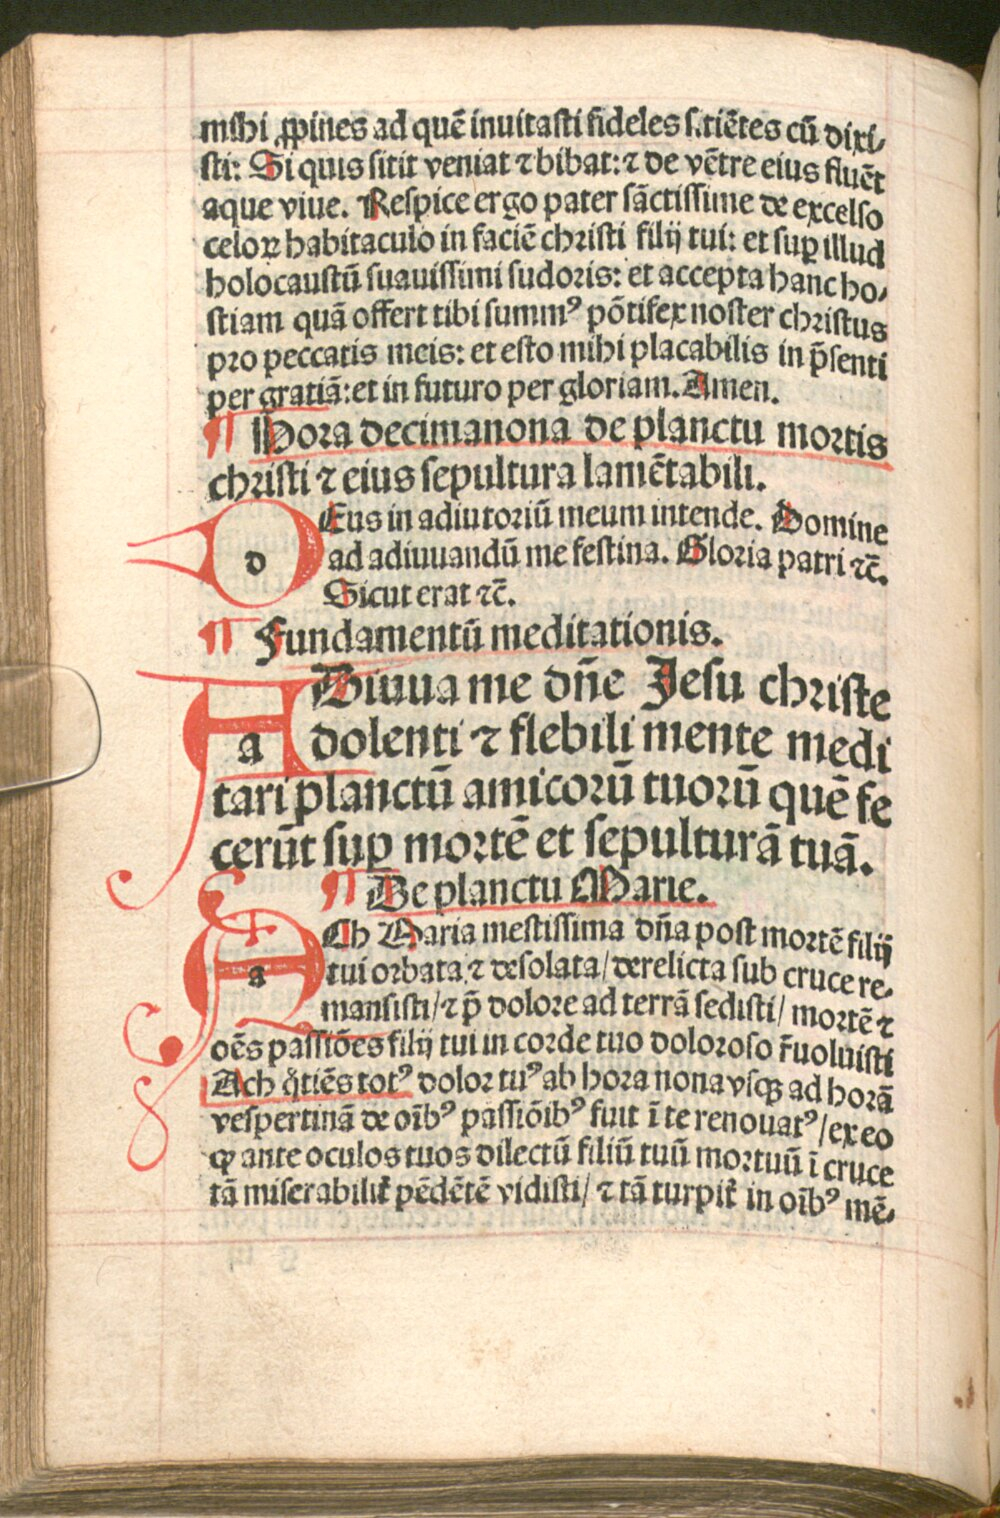 mihi ꝓpines ad quē inuitasti fideles sitiētes cū dixi-
sti: Si quis sitit veniat ⁊ bibat: ⁊ de vētre eius fluēt
aque viue. Respice ergo pater sāctissime de excelso
celoꝝ habitaculo in faciē christi filij tui: et suꝑ illud
holocaustū suauissimi sudoris: et accepta hanc ho-
stiam quā offert tibi summꝰ pōtifex noster christus
pro peccatis meis: et esto mihi placabilis in p̄senti
per gratiā: et in futuro per gloriam. Amen.
¶ Hora decimanona de planctu mortis
christi ⁊ eius sepultura lamētabili.
dEus in adiutoriū meum intende. Domine
ad adiuuandū me festina. Gloria patri ⁊c̄.
Sicut erat ⁊c̄.
¶ Fundamentū meditationis.
aDiuua me dn̄e Jesu christe
dolenti ⁊ flebili mente medi
tari planctū amicorū tuorū quē fe
cerūt suꝑ mortē et sepulturā tuā.
¶ De planctu Marie.
aCh Maria mestissima dn̄a post mortē filij
tui orbata ⁊ desolata/ derelicta sub cruce re-
mansisti/ ⁊ p̄ dolore ad terrā sedisti/ mortē ⁊
oēs passiōes filij tui in corde tuo doloroso r̄uoluisti
Ach q̄tiēs totꝰ dolor tuꝰ ab hora nona vsqꝫ ad horā
vespertinā de oībꝰ passiōibꝰ fuit ī te renouatꝰ/ ex eo
ꝙ ante oculos tuos dilectū filiū tuū mortuū ī cruce
tā miserabilit̄ pēdētē vidisti/ ⁊ tā turpit̄ in oībꝰ mē-